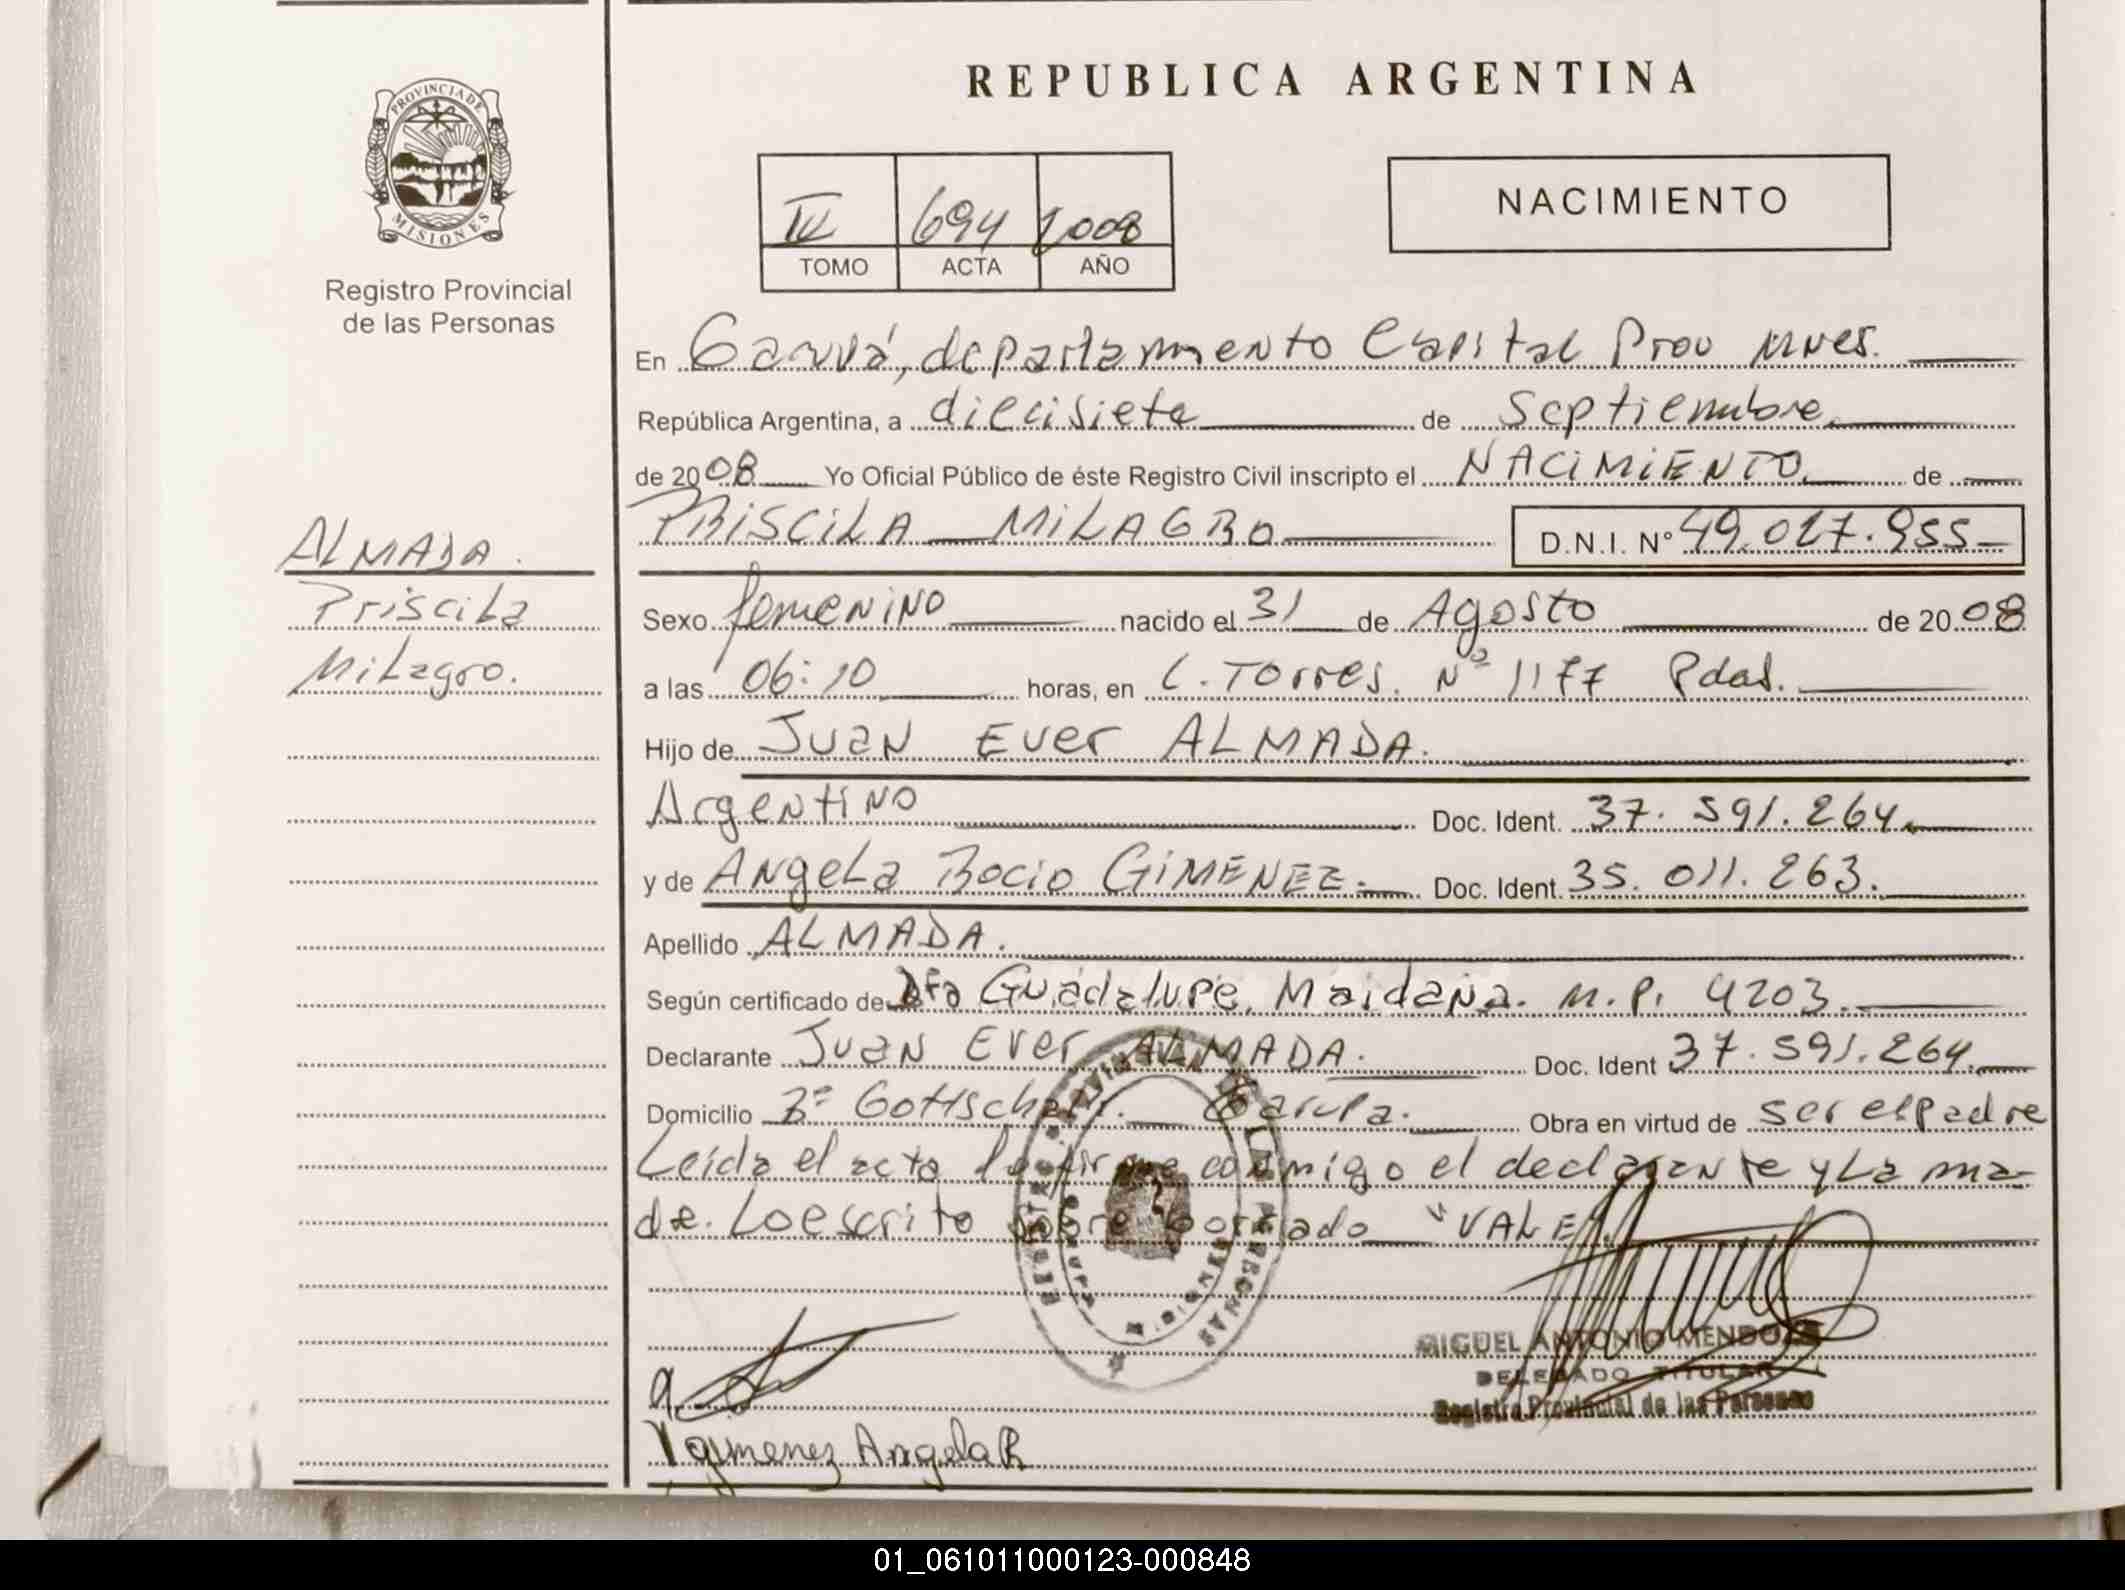 REPUBLICA ARGENTINA
PROVINCIA DE
MISIONES
Registro Provincial
de las Personas
694 2008
TOMO ACTA AÑO
NACIMIENTO
En Garupá, departamento Capital Prov Mnes.
República Argentina, a diecisiete de Septiembre
de 2008 Yo Oficial Público de éste Registro Civil inscripto el NACIMIENTO de
PRISCILA MILAGRO D.N.I. Nº 49.027.955
ALMADA.
Priscila
Milagro.
Sexo femenino nacido el 31 de Agosto de 2008
a las 06:10 horas, en C. Torres. Nº 1177 Pdas.
Hijo de Juan Ever ALMADA.
Argentino Doc. Ident. 37.591.264
y de Angela Rocio GIMENEZ. Doc. Ident. 35.011.263.
Apellido ALMADA.
Según certificado de Dra Guadalupe Maidana. M.P. 4203.
Declarante Juan Ever ALMADA. Doc. Ident 37.591.264.
Domicilio Bº Gottschalk. Garupa. Obra en virtud de ser el padre
Leida el acta la firma conmigo el declarante y La ma-
dre. Lo escrito sobre borrado "VALE"
MIGUEL ANTONIO MENDOZA
DELEGADO TITULAR
Registro Provincial de las Personas
Gimenez Angela R
01_061011000123-000848